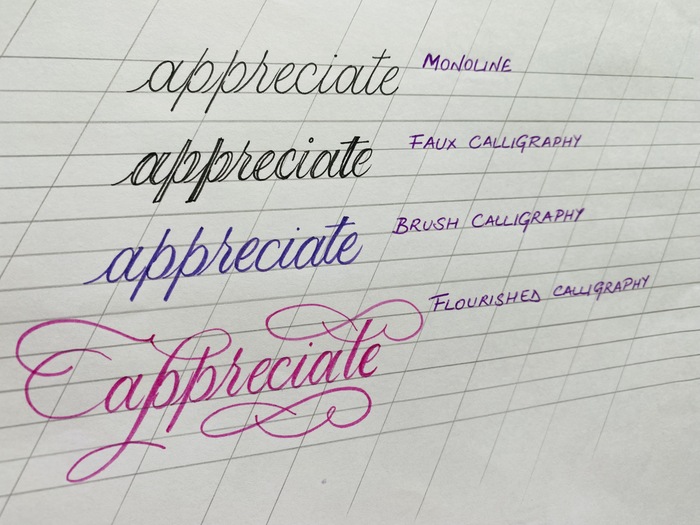 appreciate MONOLINE
appreciate FAUX CALLIGRAPHY
appreciate BRUSH CALLIGRAPHY
appreciate FLOURISHED CALLIGRAPHY